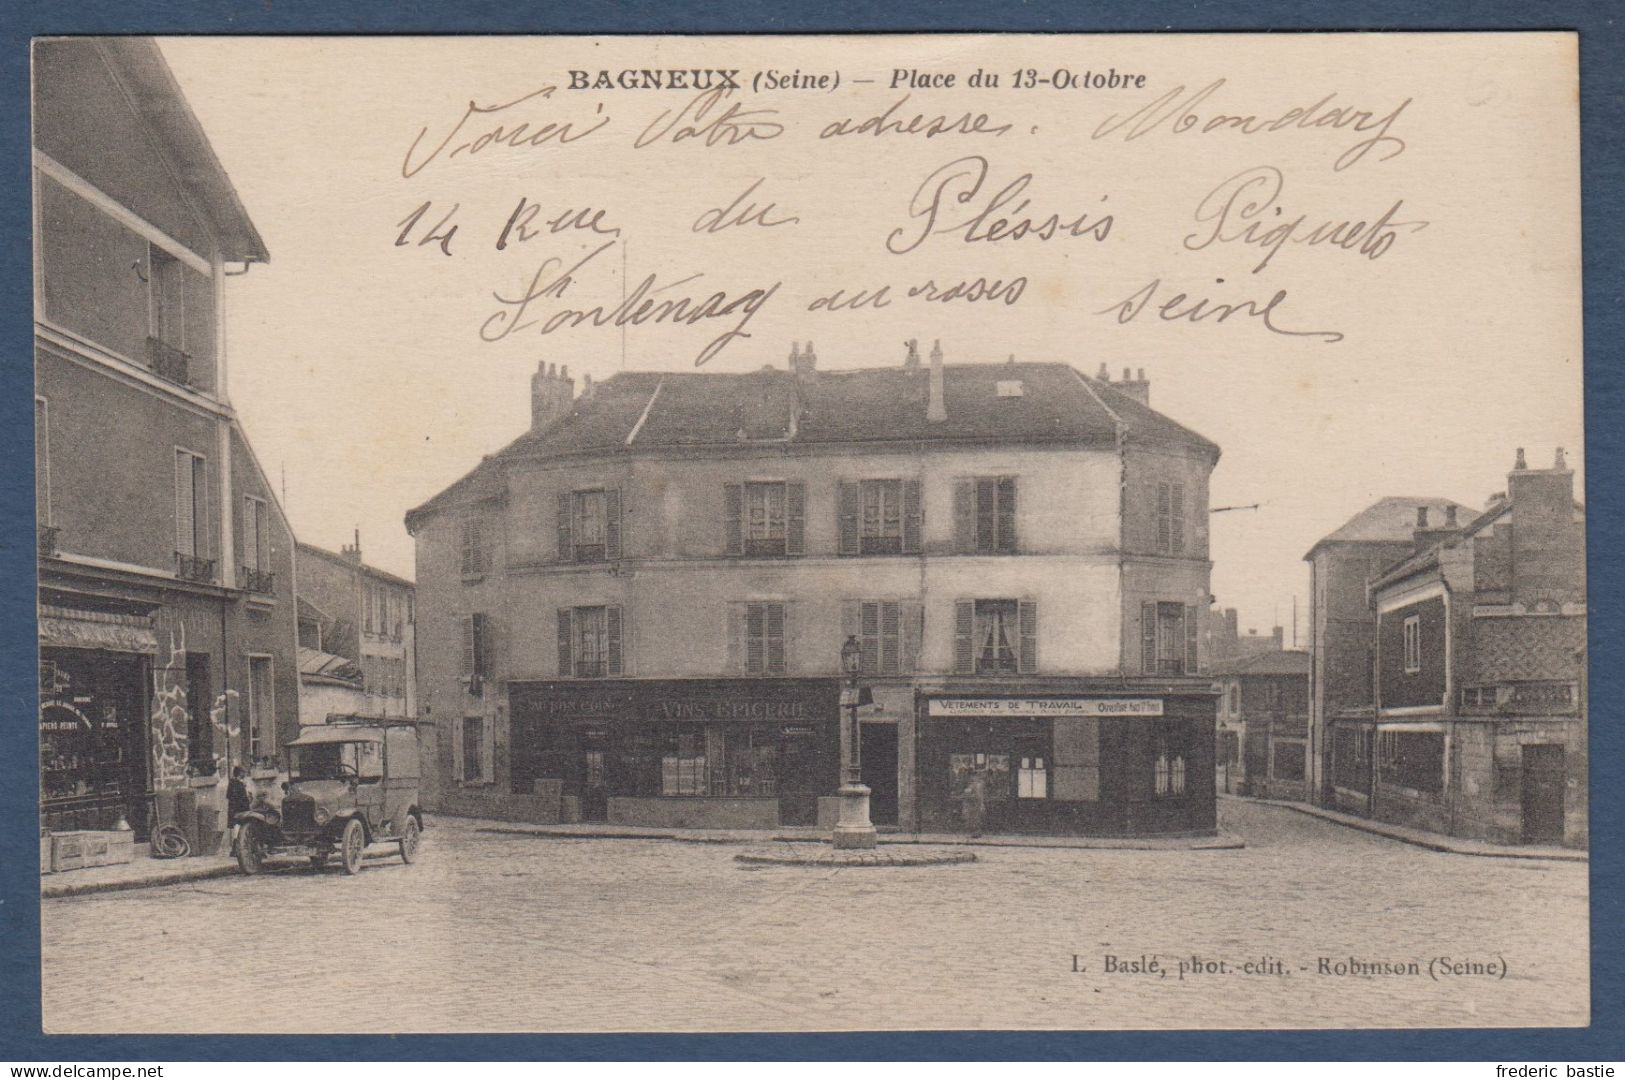 BAGNEUX (Seine) — Place du 13-Octobre
Voici Votre adresse. Mondary
14 Rue du Pléssis Piquets
Fontenay au roses Seine
AU BON COIN
VINS EPICERIE
VETEMENTS DE TRAVAIL
L. Baslé, phot.-edit. - Robinson (Seine)
delcampe.net
frederic bastie